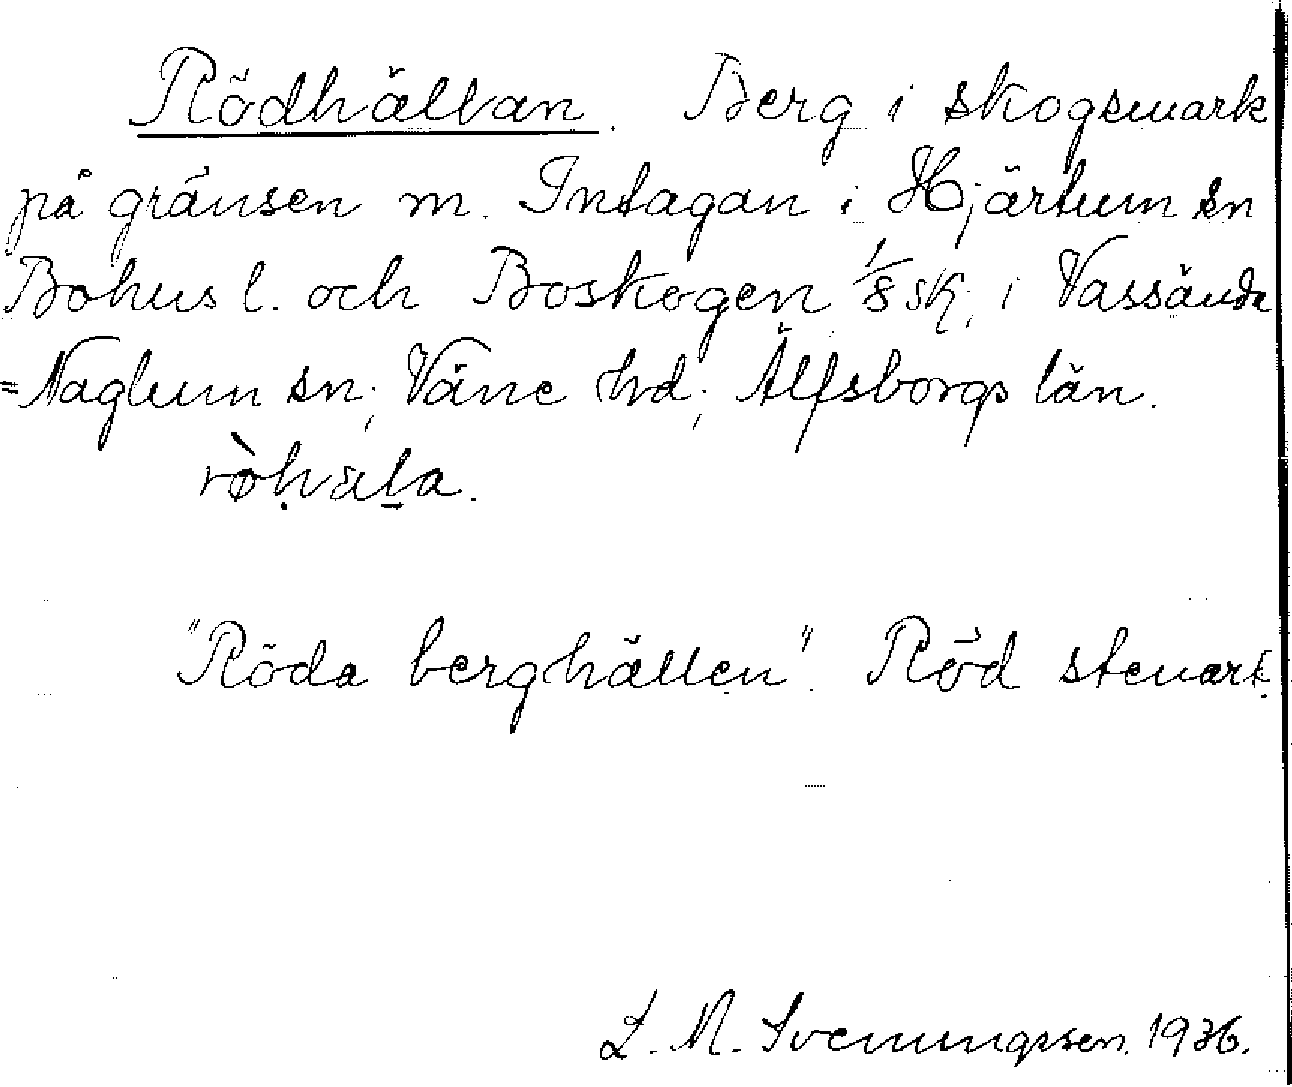 Rödhällan. Berg i skogsmark
på gränsen m. Intagan i Hjärtum sn
Bohus l. och Boskogen 1/8 sk, i Vassända
=Naglum sn, Väne hd, Älfsborgs län.
"Röda berghällen". Röd stenart.
L. M. Svenungsson. 1936.